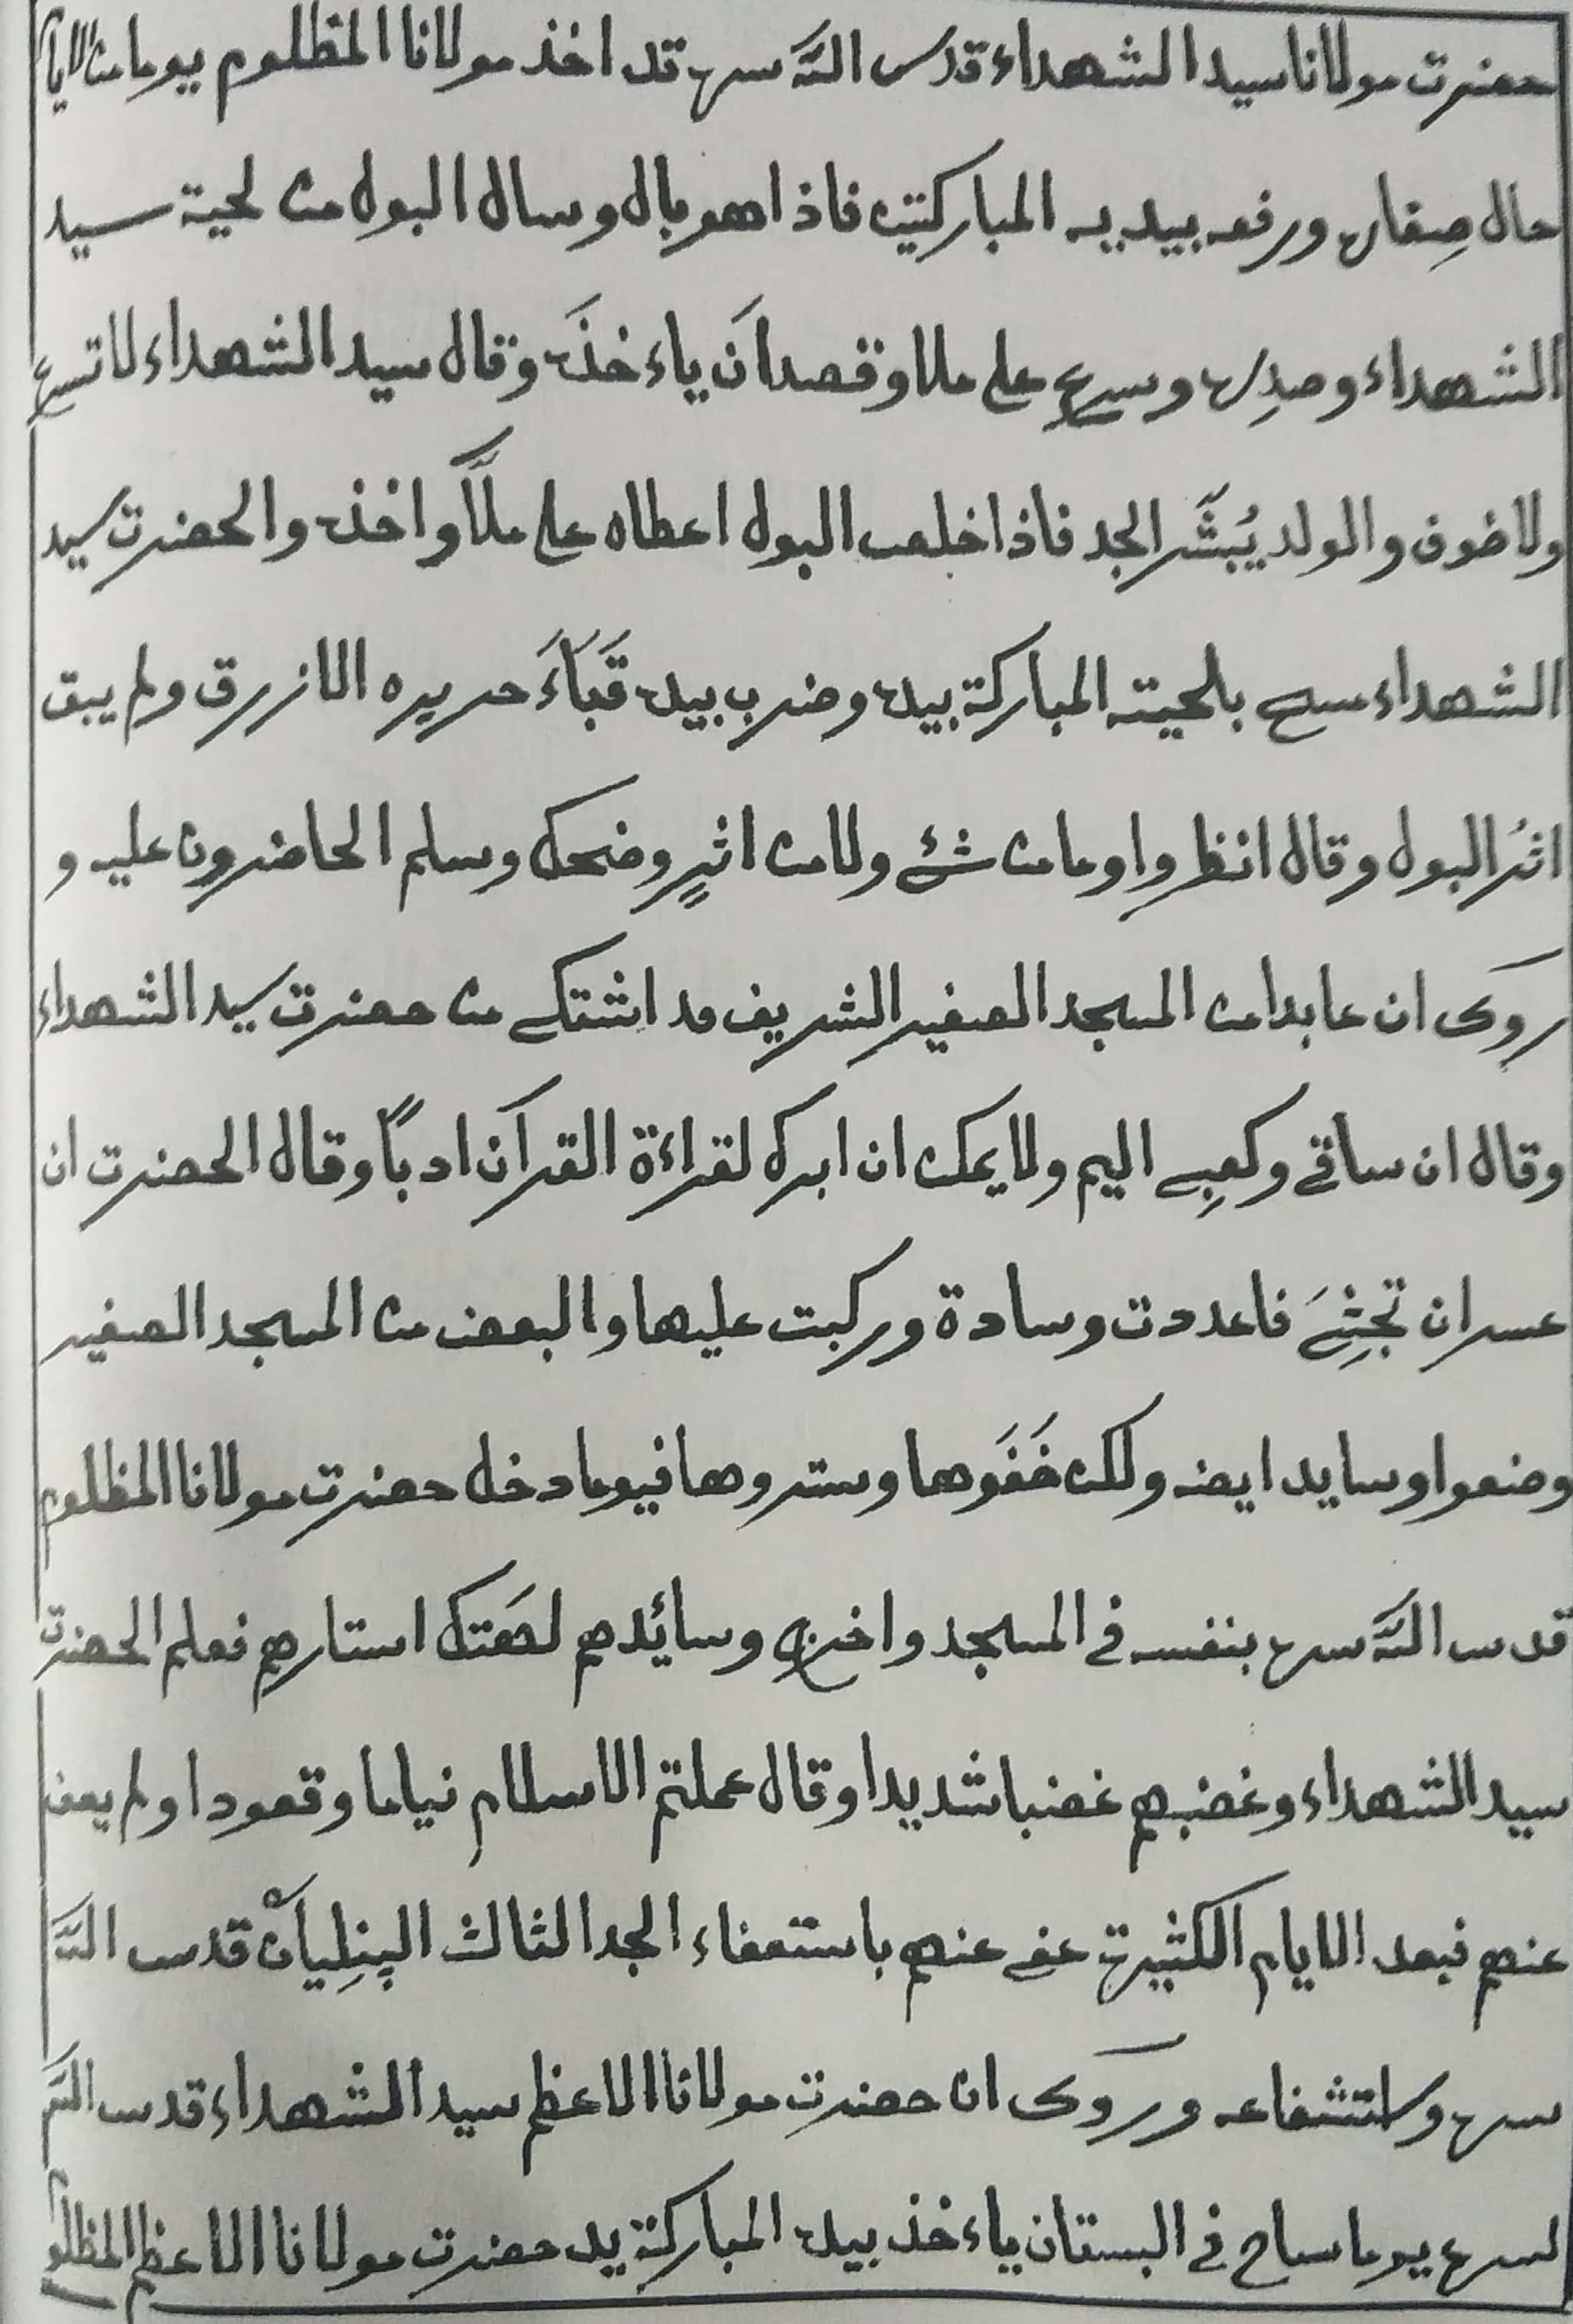 حضرت مولانا سيد الشهداء قدس الله سره قد اخذ مولانا المظلوم يوما من الايام
حال صِغاره ورفعه بيديه المباركتين فاذا هو بال وسال البول من لحية سيد
الشهداء وصدره وسرع علي ملا وقصد اَن ياءخذَه وقال سيد الشهداء لا تسرع
ولا خوف والولد يُبشَّر الجد فاذا خلص البول اعطاه علي ملاَّ واخذه والحضرت سيد
الشهداء مسح بلحيته المباركة بيده وضرب بيده قَبَاءَ حريره الازرق ولم يبق
اثرُ البول وقال انظروا وما من شئ ولا من اثرٍ وضحك وسلم الحاضرون عليه و
روى ان عابدا من المسجد الصغير الشريف قد اشتكى من حضرت سيد الشهداء
وقال ان ساقي وكعبِي اليم ولا يمكن ان ابرك لقراءة القرآن ادباً وقال الحضرت ان
عسر ان تجثِيَ فاعددت وسادة وركبت عليها والبعض من المسجد الصغير
وضعوا وسايد ايضه ولكن خَفَوها وستروها فيوما دخل حضرت مولانا المظلوم
قدس الله سره بنفسه في المسجد واخرج وسائدهم لهَتك استارهم فعلم الحضرت
سيد الشهداء وغضبهم غضبا شديدا وقال عملتم الاسلام نياما وقعودا ولم يعف
عنهم فبعد الايام الكثيرة عفي عنهم باستعفاء الجد الثالث الپنلِياَنْ قدس الله
سره واستشفاعه وروى ان حضرت مولانا الاعظم سيد الشهداء قدس الله
لسره يوما ساح في البستان ياءخذ بيده المباركة يد حضرت مولانا الاعظم المظلوم